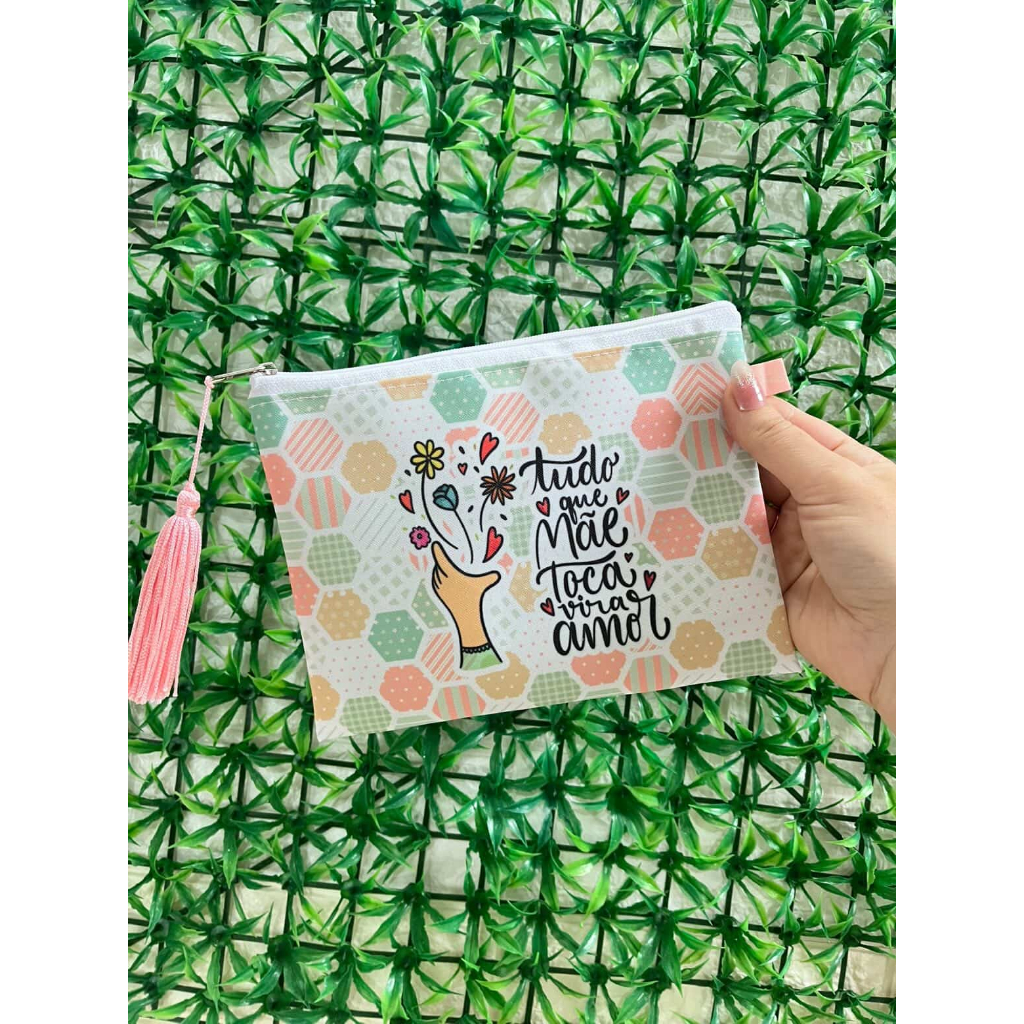 tudo
que
Mãe
Toca
vira
amor